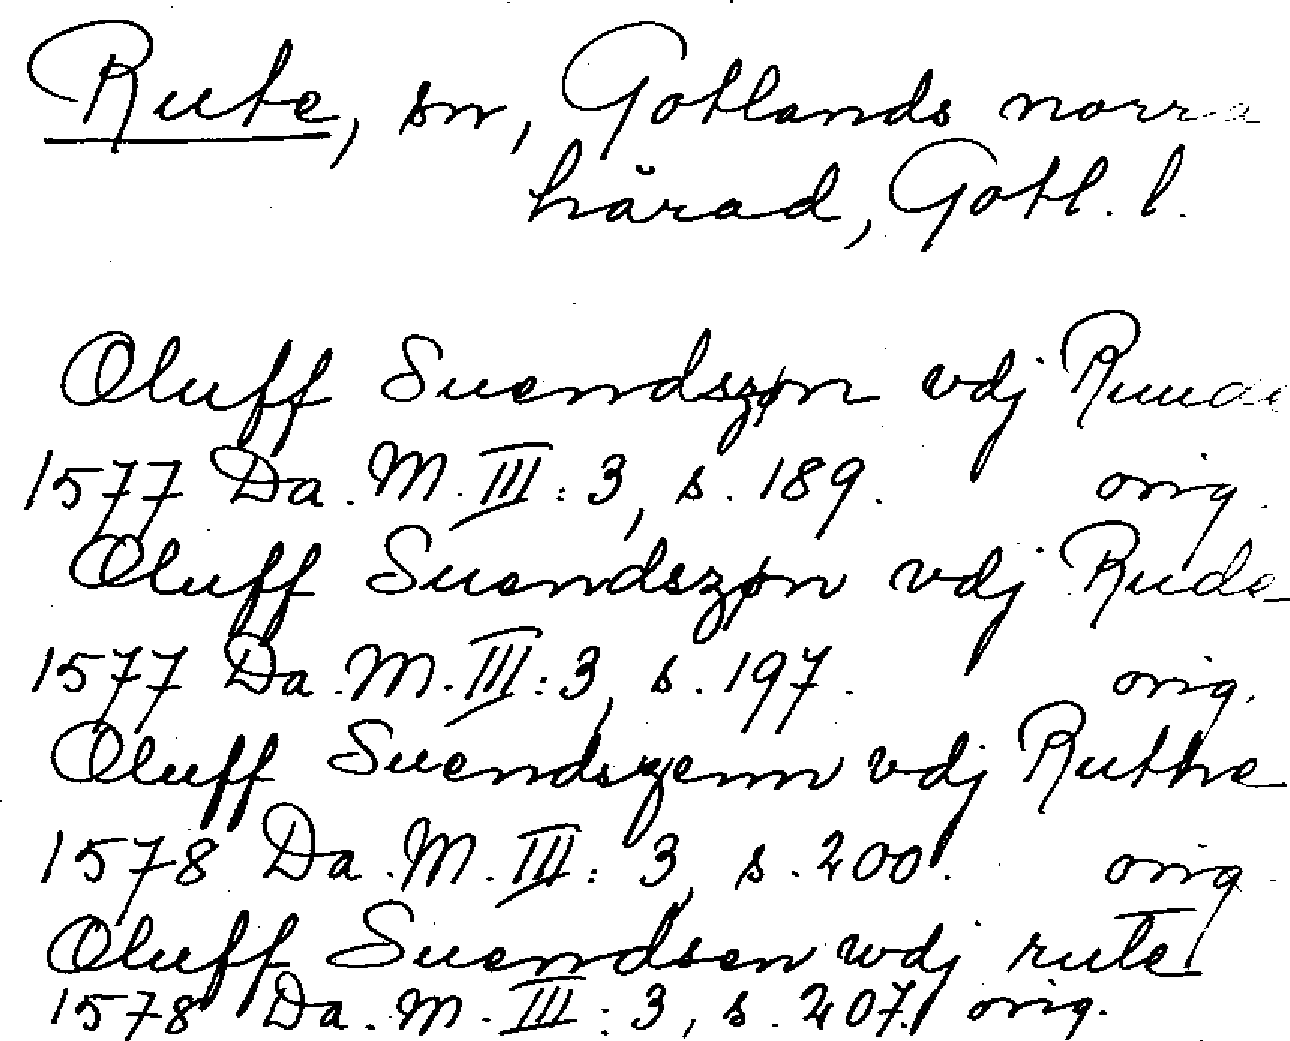 Rute, sn, Gotlands norra
härad, Gotl. l.
Oluff Suendszøn vdj Ruude
1577 Da. M. III: 3, s. 189. orig.
Oluff Suendszøn vdj Rude
1577 Da. M. III: 3, s. 197. orig.
Oluff Suendszenn vdj Ruthe
1578 Da. M. III: 3, s. 200. orig.
Oluff Suendsen wdj rute
1578 Da. M. III: 3, s. 207. orig.